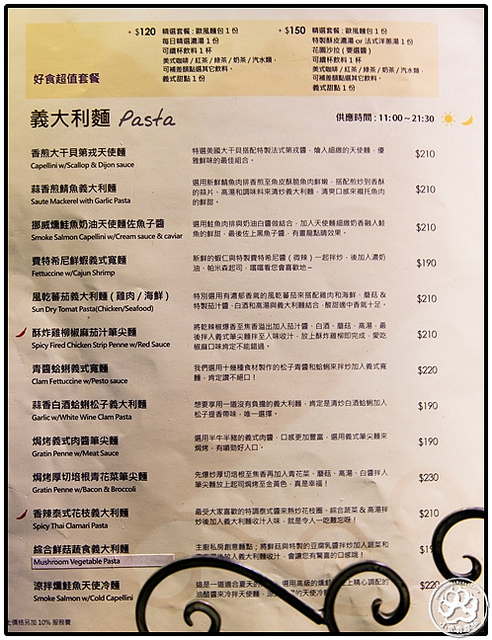 + $120 精選套餐 : 歐風麵包 1 份
每日精選濃湯 1 份
可續杯飲料 1 杯
美式咖啡 / 紅茶 / 綠茶 / 奶茶 / 汽水類,
可補差額點選其它飲料。
義式甜點 1 份
+ $150 精選套餐 : 歐風麵包 1 份
特製酥皮濃湯 or 法式洋蔥湯 1 份
花園沙拉 ( 要選醬 )
可續杯飲料 1 杯
美式咖啡 / 紅茶 / 綠茶 / 奶茶 / 汽水類,
可補差額點選其它飲料。
義式甜點 1 份
好食超值套餐
義大利麵 Pasta
供應時間 : 11:00~21:30
香煎大干貝第戎天使麵
Capellini w/Scallop & Dijon sauce
特選美國大干貝搭配特製法式第戎醬，燴入細緻的天使麵，優
雅鮮味的最佳組合。
$210
蒜香煎鯖魚義大利麵
Saute Mackerel with Garlic Pasta
選用新鮮鯖魚肉排香煎至魚皮酥脆魚肉鮮嫩，搭配煎炒到香酥
的蒜片、高湯和調味料來清炒義大利麵，清爽口感來襯托魚肉
的鮮甜。
$210
挪威燻鮭魚奶油天使麵佐魚子醬
Smoke Salmon Capellini w/Cream sauce & caviar
選用鮭魚肉排與奶油白醬做結合，加入天使麵細緻奶香融入鮭
魚的鮮甜，最後佐上黑魚子醬，有畫龍點睛效果。
$210
費特希尼鮮蝦義式寬麵
Fettuccine w/Cajun Shrimp
新鮮的蝦仁與特製費特希尼醬 ( 微辣 ) 一起拌炒，後加入濃奶
油、帕米森起司，嚐嚐看您會喜歡地~
$190
風乾蕃茄義大利麵 ( 雞肉 / 海鮮 )
Sun Dry Tomat Pasta(Chicken/Seafood)
特別選用有濃郁香氣的風乾蕃茄來搭配雞肉和海鮮、蘑菇 &
特製茄汁醬、白酒和高湯與義大利麵結合，酸甜適中香氣十足。
$210
酥炸雞柳椒麻茄汁筆尖麵
Spicy Fired Chicken Strip Penne w/Red Sauce
將乾辣椒爆香至焦香溢出加入茄汁醬、白酒、蘑菇、高湯，最
後拌入義式筆尖麵拌至入味收汁，放上酥炸雞柳即完成，愛吃
椒麻口味肯定不能錯過。
$210
青醬蛤蜊義式寬麵
Clam Fettuccine w/Pesto sauce
我們選用十幾種食材製作的松子青醬和蛤蜊來拌炒加入義式寬
麵，肯定讚不絕口！
$220
蒜香白酒蛤蜊松子義大利麵
Garlic w/White Wine Clam Pasta
想要享用一道沒有負擔的義大利麵，肯定是清炒白酒蛤蜊加入
松子提香帶味，唯一選擇。
$190
焗烤義式肉醬筆尖麵
Gratin Penne w/Meat Sauce
選用半牛半豬的義式肉醬，口感更加豐富，選用義式筆尖麵來
焗烤，有嚼勁好入口。
$190
焗烤厚切培根青花菜筆尖麵
Gratin Penne w/Bacon & Broccoli
先爆炒厚切培根至焦香再加入青花菜、蘑菇、高湯、白醬拌入
筆尖麵放上起司焗烤至金黃色，真是幸福！
$230
香辣泰式花枝義大利麵
Spicy Thai Clamari Pasta
最受大家喜歡的特調泰式醬來熱炒花枝圈、綜合蔬菜 & 高湯拌
炒後加入義大利麵收汁入味，就是令人一吃難忘呀！
$210
綜合鮮菇蔬食義大利麵
Mushroom Vegetable Pasta
主廚私房創意麵點；將鮮菇與特製的豆腐乳醬拌炒加入蔬菜和
放入義大利麵收汁，會讓您有驚喜的口感哦！
涼拌燻鮭魚天使冷麵
Smoke Salmon w/Cold Capellini
這是一道適合夏天的 選用高級的燻鮭 上精心調配的
油醋醬來冷拌天使麵， 的天使冷麵
$220
上價格另加 10% 服務費